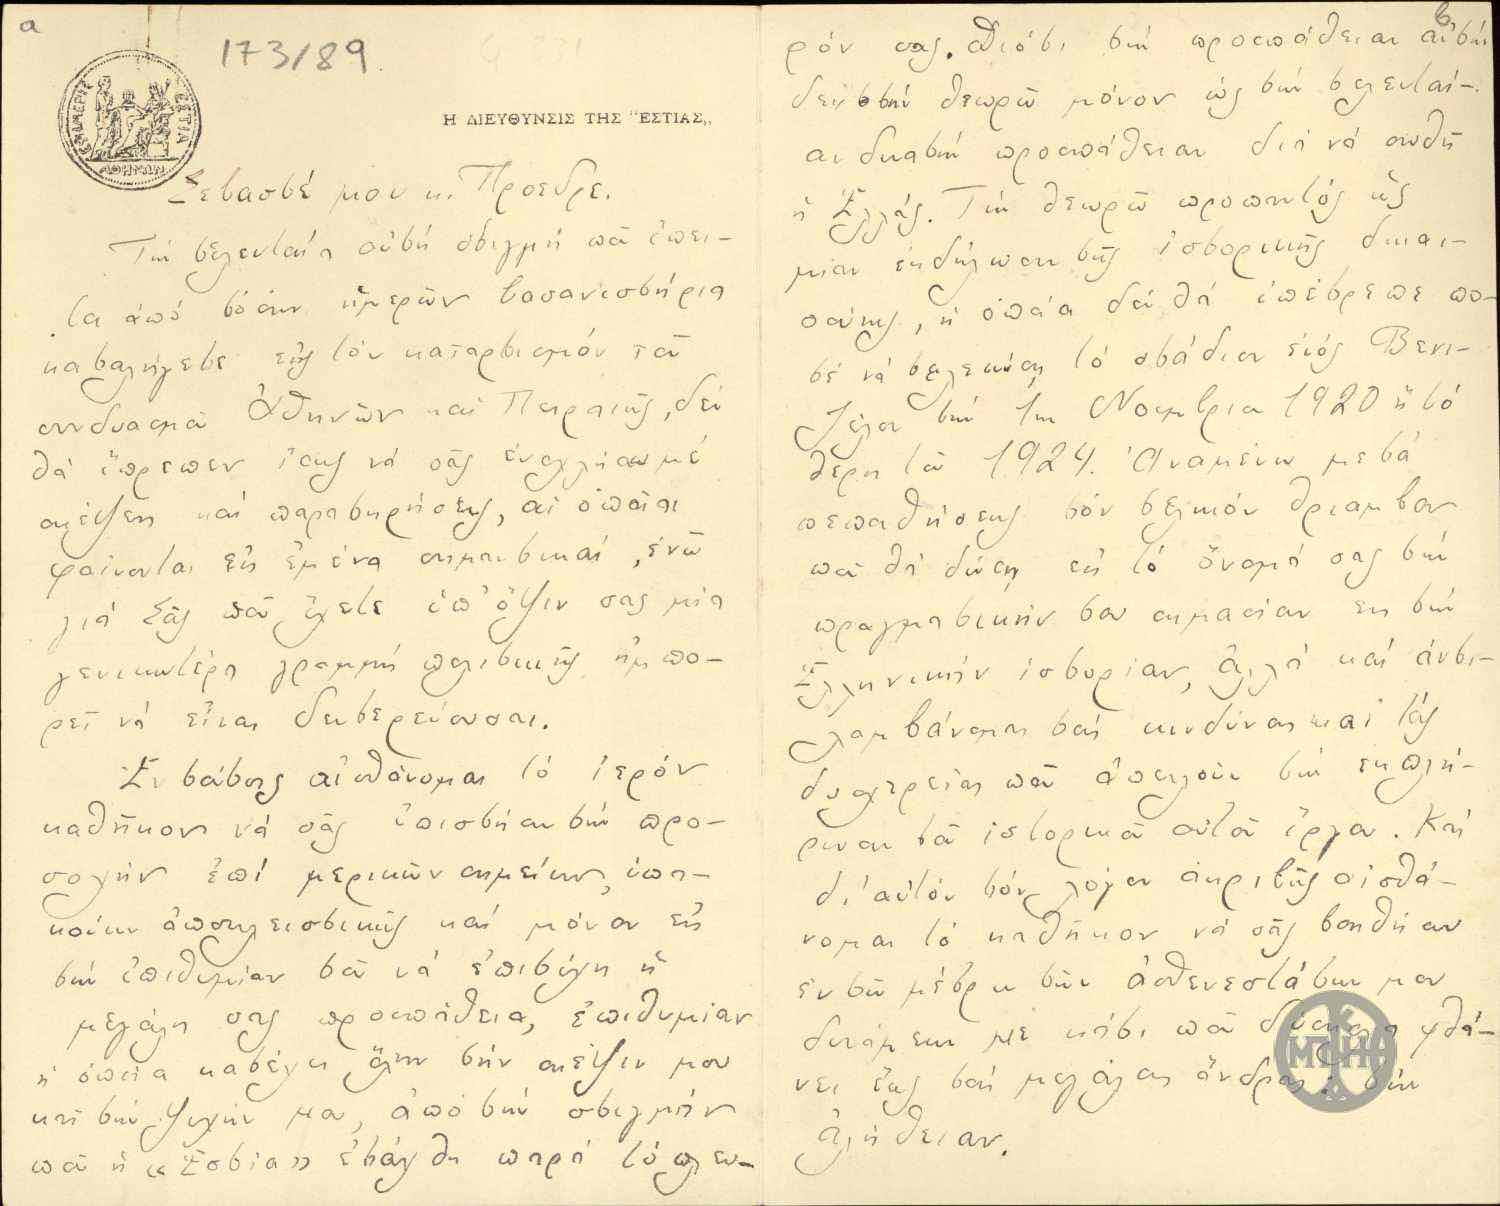 α
173/89
ΕΦΗΜΕΡΙΣ ΕΣΤΙΑ
ΑΘΗΝΩΝ
Η ΔΙΕΥΘΥΝΣΙΣ ΤΗΣ "ΕΣΤΙΑΣ„
Σεβαστέ μου κ. Πρόεδρε.
Τὴν τελευταία αὐτὴ στιγμὴ ποῦ ἔπει-
τα ἀπὸ τόσων ἡμερῶν βασανιστήρια
κατελήγετε εἰς τὸν καταρτισμόν τοῦ
συνδυασμοῦ Ἀθηνῶν καὶ Πειραιῶς, δὲν
θὰ ἔπρεπεν ἴσως νὰ σᾶς ἐνοχλήσω μὲ
σκέψεις καὶ παρατηρήσεις, αἱ ὁποῖαι
φαίνονται εἰς ἐμένα σημαντικαί, ἐνῶ
γιὰ Σᾶς ποῦ ἔχετε ὑπ' ὄψιν σας μία
γενικωτέρα γραμμὴ πολιτικῆς ἠμπο-
ρεῖ νὰ εἶναι δευτερεύουσαι.
Ἐν τούτοις αἰσθάνομαι τὸ ἱερόν
καθῆκον νὰ σᾶς ἐπιστήσω τὴν προ-
σοχὴν ἐπὶ μερικῶν σημείων, ὑπα-
κούων ἀποκλειστικῶς καὶ μόνον εἰς
τὴν ἐπιθυμίαν τοῦ νὰ ἐπιτύχη ἡ
μεγάλη σας προσπάθεια, ἐπιθυμίαν
ἡ ὁποία κατέχει ὅλην τὴν σκέψιν μου
καὶ τὴν ψυχήν μου, ἀπὸ τὴν στιγμὴν
ποῦ ἡ «Ἑστία» ἐτάχθη παρὰ τὸ πλευ-
β
ρόν σας. Διότι τὴν προσπάθειαν αὐτὴν
δὲν τὴν θεωρῶ μόνον ὡς τὴν τελευταί-
αν δικαϊκὴν προσπάθειαν διὰ νὰ σωθῆ
ἡ Ἑλλάς. Τὴν θεωρῶ προπαντὸς ὡς
μίαν ἐκδήλωσιν τῆς ἱστορικῆς δικαι-
οσύνης, ἡ ὁποία δὲν θὰ ἐπέτρεπε πο-
τὲ νὰ τελειώση τὸ στάδιον ἑνὸς Βενι-
ζέλου τὴν 1ην Νοεμβρίου 1920 ἢ τὸ
θέρος τοῦ 1924. Ἀναμένω μετὰ
πεποιθήσεως τὸν τελικὸν θρίαμβον
ποῦ θὰ δώση εἰς τὸ ὄνομά σας τὴν
πραγματικήν του σημασίαν εἰς τὴν
Ἑλληνικὴν ἱστορίαν, ἀλλὰ καὶ ἀντι-
λαμβάνομαι τοὺς κινδύνους καὶ τὰς
δυσχερείας ποῦ ἀπειλοῦν τὴν ἐκπλή-
ρωσιν τοῦ ἱστορικοῦ αὐτοῦ ἔργου. Καὶ
δι' αὐτὸν τὸν λόγον ἀκριβῶς αἰσθά-
νομαι τὸ καθῆκον νὰ σᾶς βοηθήσω
ἐν τῷ μέτρῳ τῶν ἀσθενεστάτων μου
δυνάμεων μὲ κάτι ποῦ δύσκολα φθά-
νει ἕως τοὺς μεγάλους ἄνδρας: τὴν
ἀλήθειαν.